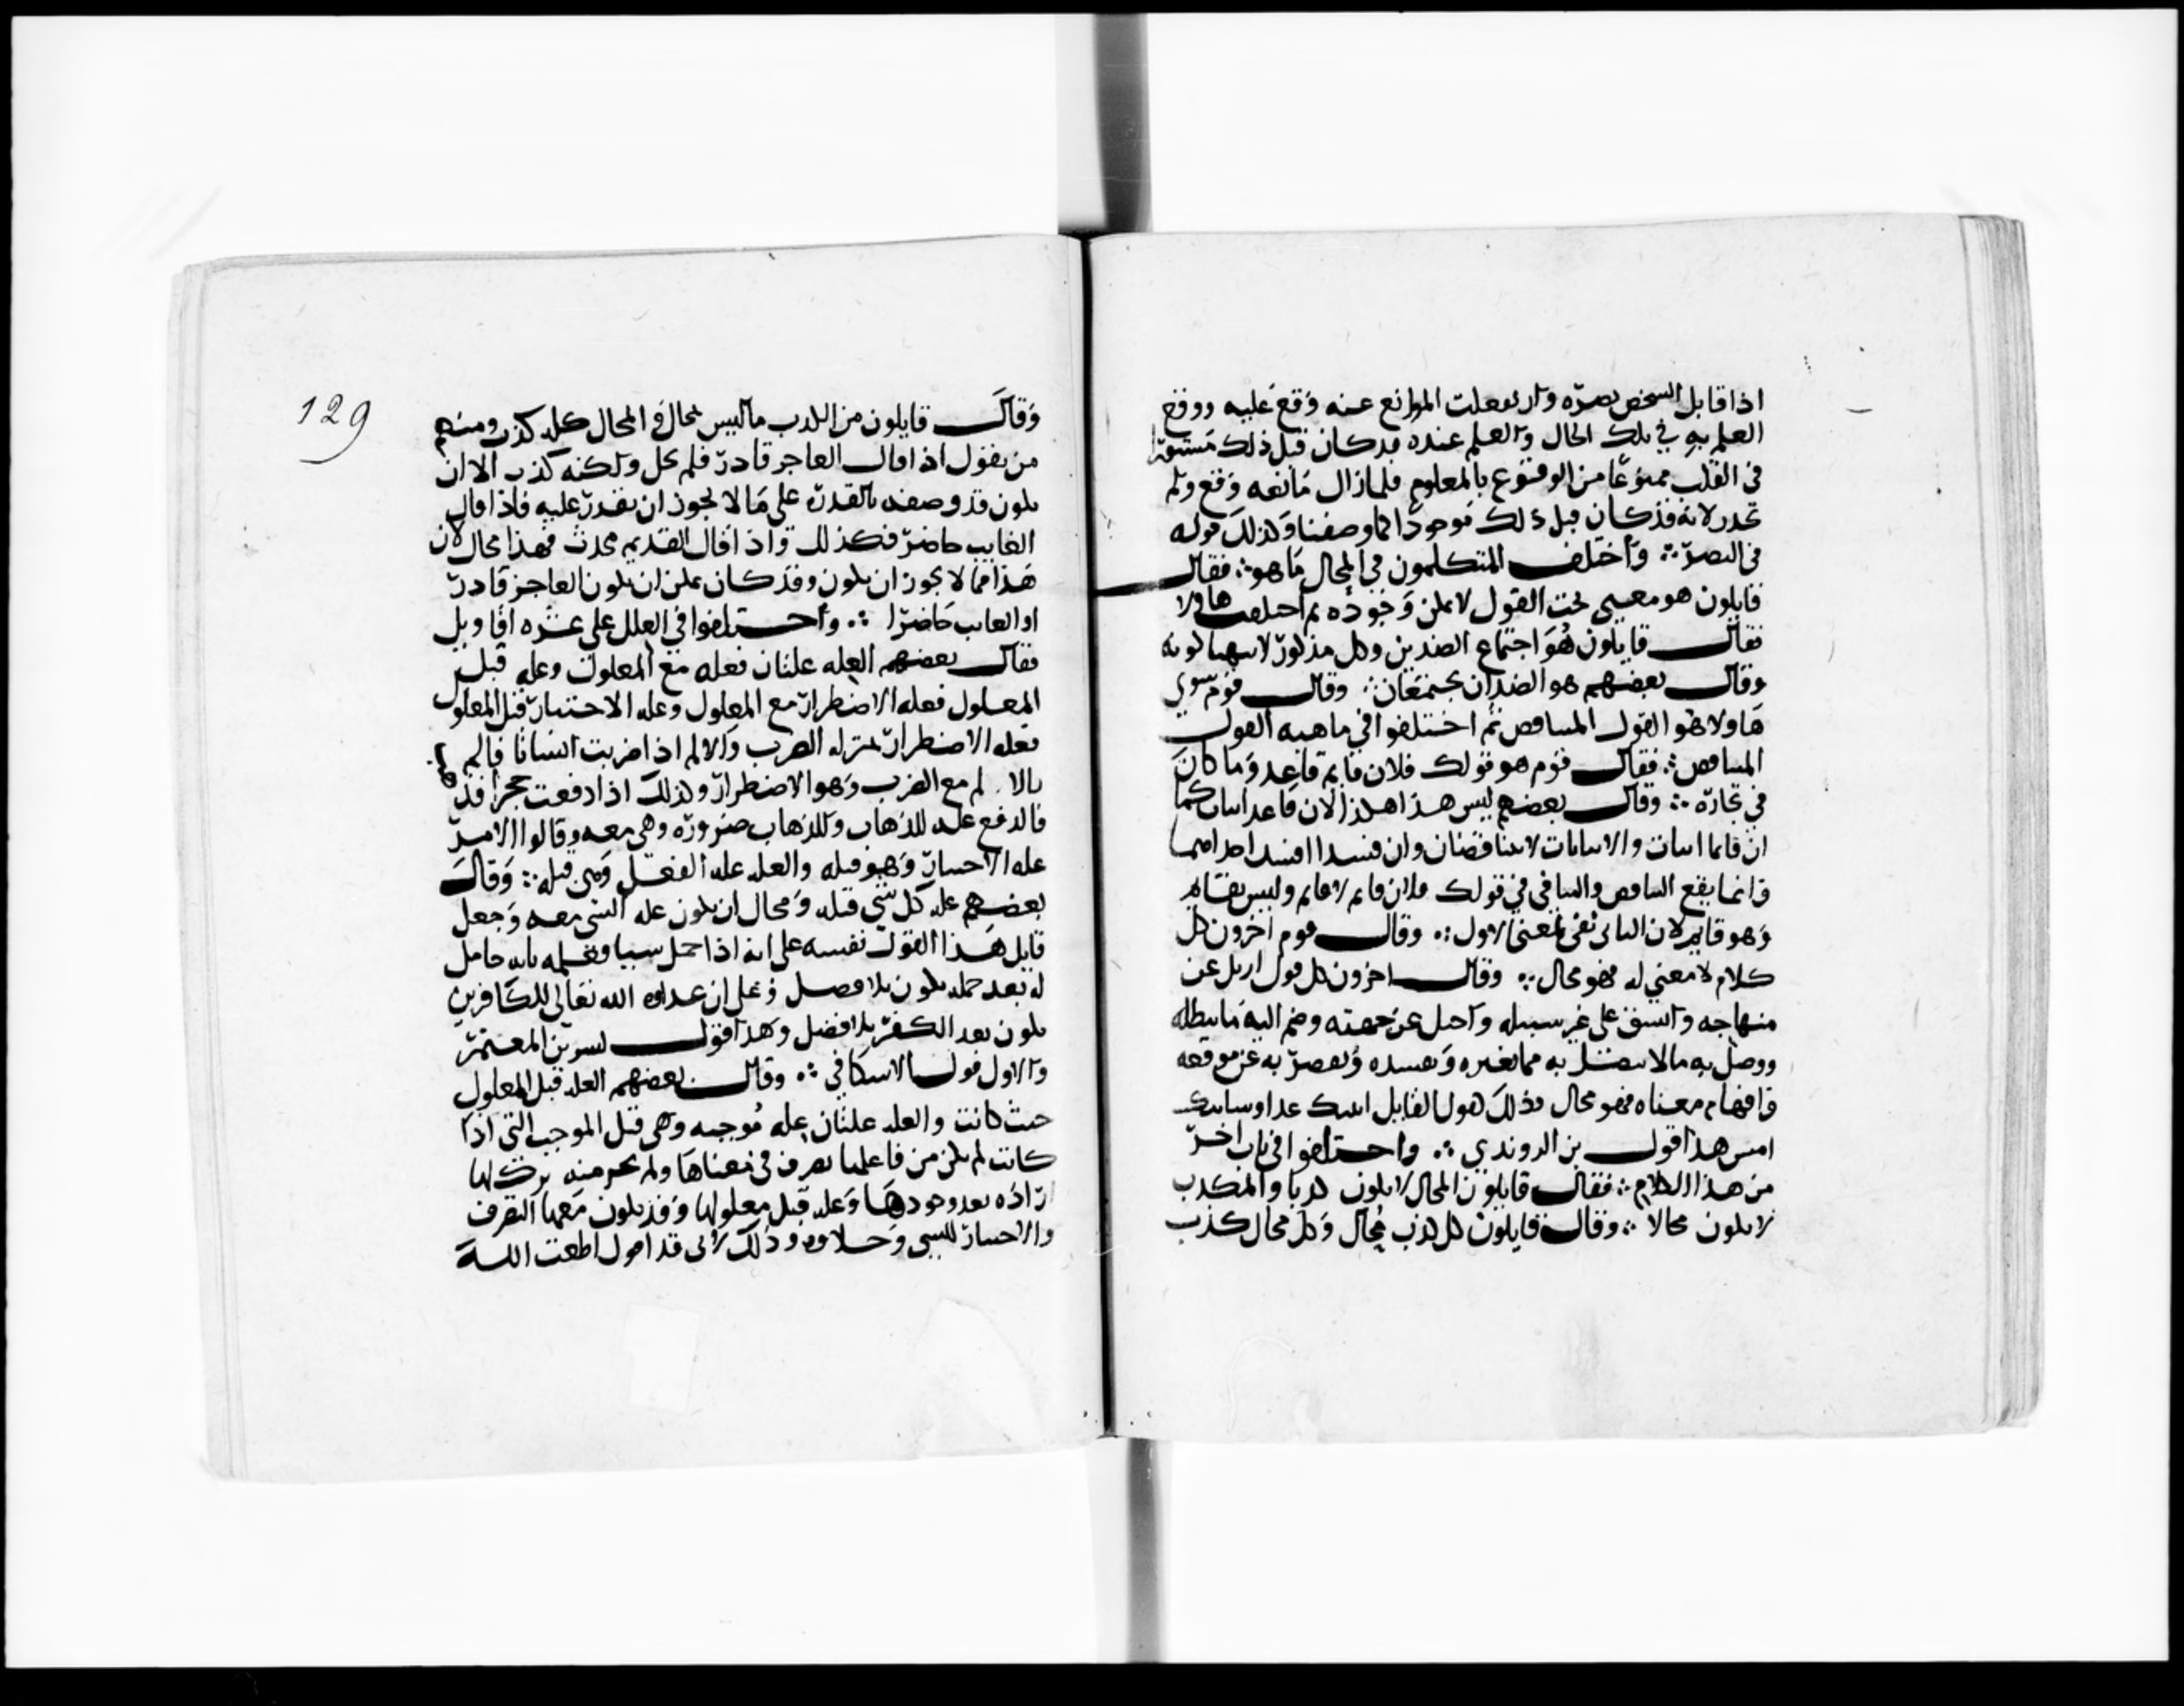 اذا قابل الشخص بصره وارتفعت الموانع عنه وقع عليه ووقع
العلم به في تلك الحال والعلم عنده قد كان قبل ذلك مستقرا
في القلب ممنوعا من الوقوع بالمعلوم فلما زال مانعه وقع ولم
يحدث لانه قد كان قبل ذلك موجودا كما وصفنا وكذلك قوله
في البصر ∴ واختلف المتكلمون في المحال ما هو ∴ فقال
قايلون هو معنى تحت القول لا يمكن وجوده ثم اختلف هاولا
فقال قايلون هو اجتماع الضدين وكل مذكور لا يتهيا كونه
وقال بعضهم هو الضدان يجتمعان ∴ وقال قوم سوى
هاولا هو القول المتناقض ثم اختلفوا في ماهية القول
المتناقض ∴ فقال قوم هو قولك فلان قايم قاعد وما كان
في نجاره ∴ وقال بعضهم ليس هذا هكذا لان قاعدا اثبات كما
ان قايما اثبات والاثباتات لا تتناقضان وان فسدا او فسد احدهما
وانما يقع التناقض والتنافي في قولك فلان قايم لا قايم وليس بقايم
وهو قايم لان الثاني نفي لمعنى الاول ∴ وقال قوم اخرون كل
كلام لا معنى له فهو محال ∴ وقال اخرون كل قول ازيل عن
منهاجه واتسق على غير سبيله واحيل عن جهته وضم اليه ما يبطله
ووصل به ما لا يتصل به مما يغيره ويفسده ويقصر به عن موقعه
وافهام معناه فهو محال وذلك كقول القايل اتيتك غدا وساتيك
امس هذا قول بن الروندي ∴ واختلفوا في باب اخر
من هذا الكلام ∴ فقال قايلون المحال لا يكون كذبا والكذب
لا يكون محالا ∴ وقال قايلون كل كذب محال وكل محال كذب
129
وقال قايلون من الكذب ما ليس بمحال والمحال كله كذب ومنهم
من يقول اذا قال العاجز قادر فلم يحل ولكنه كذب الا ان
يكون قد وصفه بالقدرة على ما لا يجوز ان يقدر عليه فاذا قال
الغايب حاضر فكذلك واذا قال القديم محدث فهذا محال لان
هذا مما لا يجوز ان يكون وقد كان يمكن ان يكون العاجز قادر
او الغايب حاضرا ∴ واختلفوا في العلل على عشره اقاويل
فقال بعضهم العله علتان فعله مع المعلول وعله قبل
المعلول فعله الاضطرار مع المعلول وعله الاختيار قبل المعلول
فعله الاضطرار بمنزله الضرب والالم اذا ضربت انسانا فالم
بالالم مع الضرب وهو الاضطرار وكذلك اذا دفعت حجرا فذهب
فالدفع عله للذهاب والذهاب ضروره وهى معه وقالوا الامر
عله الاختيار وهو قبله والعله عله الفعل وهى قبله ∴ وقال
بعضهم عله كل شي قبله ومحال ان يكون عله الشي معه وجعل
قايل هذا القول نفسه على انه اذا حمل شيا فعلمه بانه حامل
له بعد حمله يكون بلا فصل وعلى ان عداوه الله تعالى للكافرين
يكون بعد الكفر بلا فصل وهذا قول بشر بن المعتمر
والاول قول الاسكافي ∴ وقال بعضهم العله قبل المعلول
حيث كانت والعله علتان عله موجبه وهى قبل الموجب التي اذا
كانت لم يكن من فاعلها تصرف في معناها ولم يجز منه ترك لها
اراده بعد وجودها وعله قبل معلولها وقد يكون معها التصرف
والاختيار للشي وخلافه وذلك لاني قد اقول اطعت الله